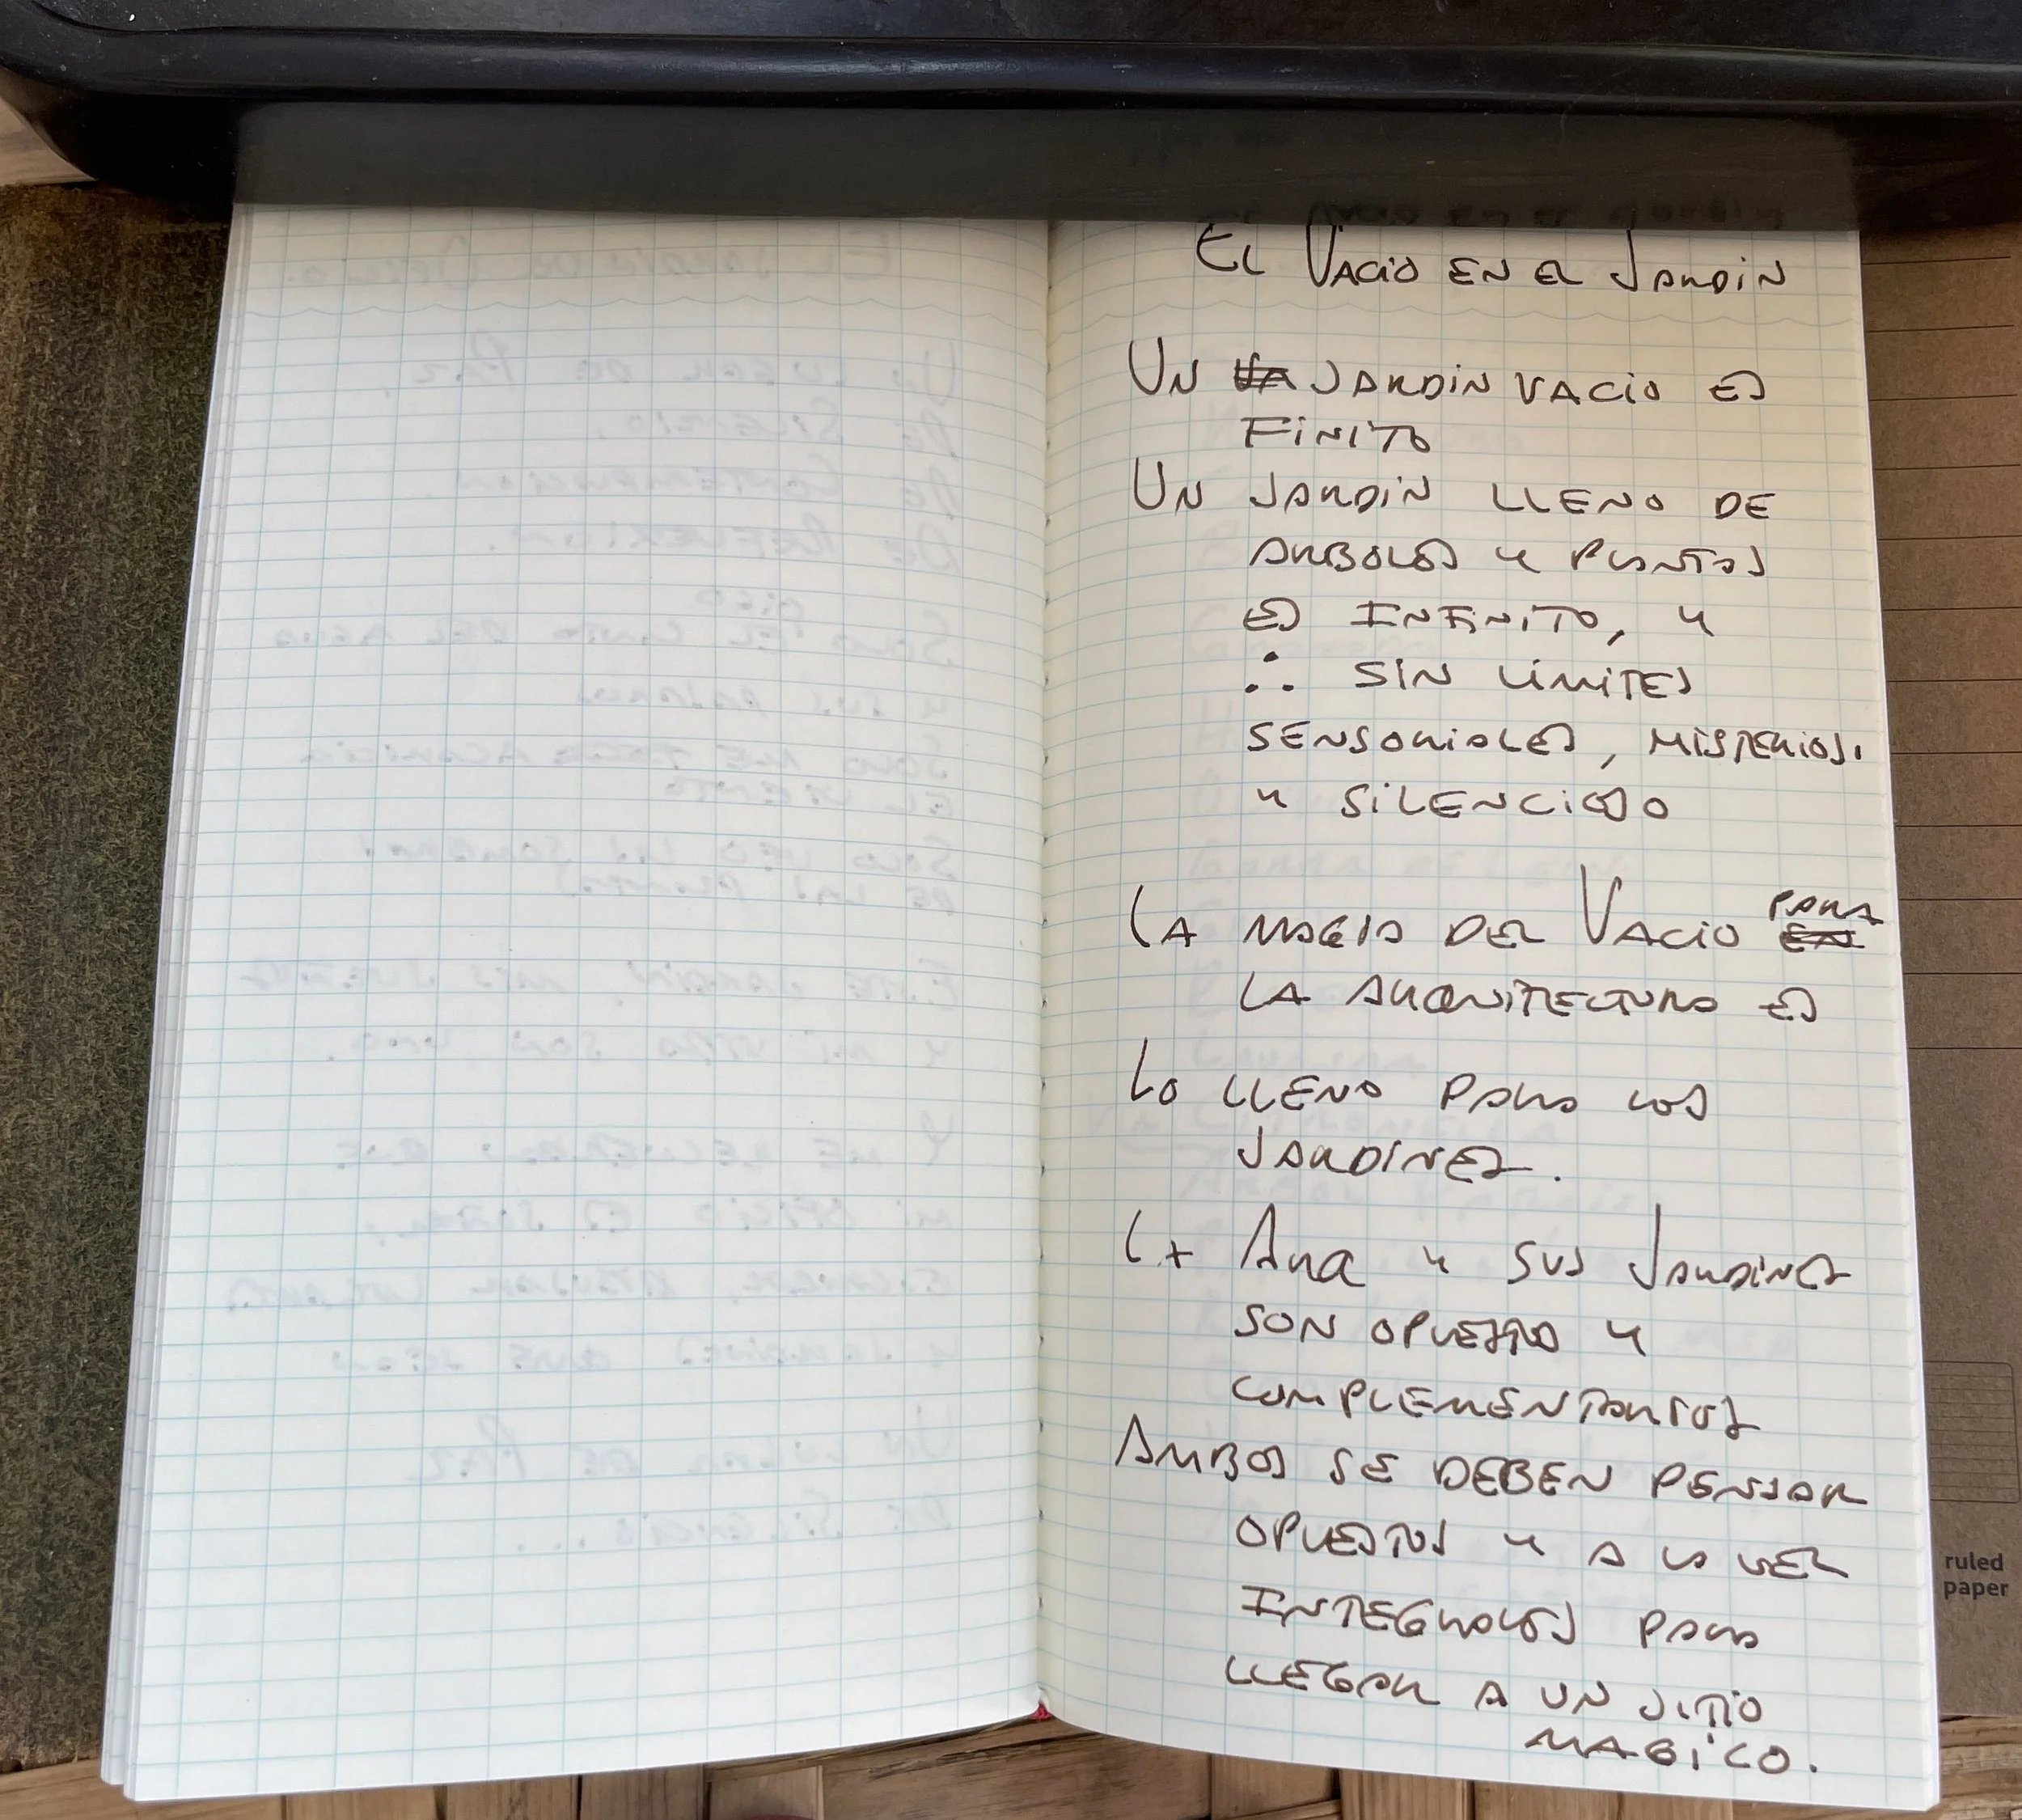 El Vacio en el Jardin
Un jardin vacio es
finito
Un jardin lleno de
arboles y plantas
es infinito, y
∴ sin limites
sensoriales, misterioso
y silencioso
La magia del Vacio para
la arquitectura es
Lo lleno para los
jardines.
La Arq y sus Jardines
son opuestos y
complementarios
Ambos se deben pensar
opuestos y a la vez
integrales para
llegar a un sitio
magico.
ruled
paper